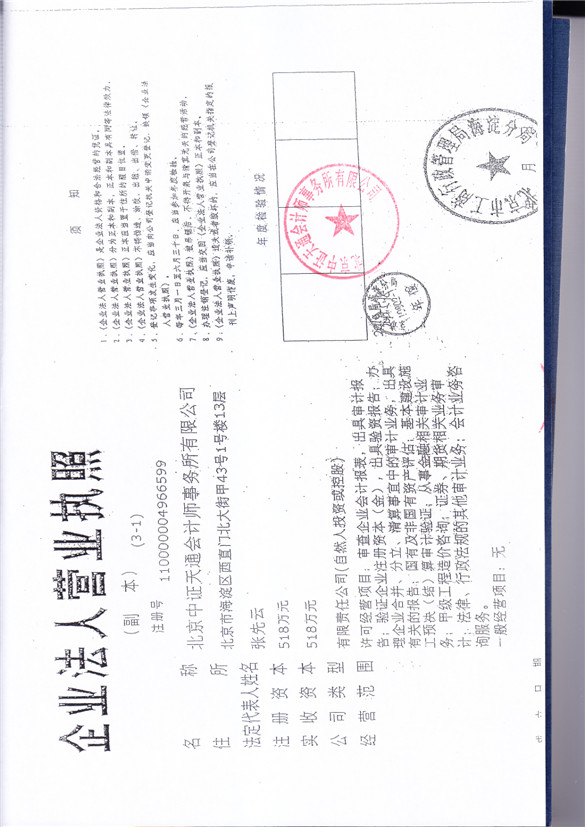 企业法人营业执照
(副 本) (3-1)
注册号 110000004966599
名 称 北京中证天通会计师事务所有限公司
住 所 北京市海淀区西直门北大街甲43号1号楼13层
法定代表人姓名 张先云
注 册 资 本 518万元
实 收 资 本 518万元
公 司 类 型 有限责任公司(自然人投资或控股)
经 营 范 围 许可经营项目：审查企业会计报表，出具审计报
告；验证企业注册资本（金），出具验资报告；办
理企业合并、分立、清算事宜中的审计业务，出具
有关的报告；国有及非国有资产评估；基本建设施
工预决（结）算审计验证；从事金融相关审计业
务；甲级工程造价咨询；证券、期货相关业务审
计；法律、行政法规的其他审计业务；会计业务咨
询服务。
一般经营项目：无
须 知
1.《企业法人营业执照》是企业法人资格和合法经营的凭证。
2.《企业法人营业执照》分为正本和副本，正本和副本具有同等法律效力。
3.《企业法人营业执照》正本应当置于住所的醒目位置。
4.《企业法人营业执照》不得伪造、涂改、出租、出借、转让。
5.登记事项发生变化，应当向公司登记机关申请变更登记，换领《企业法
人营业执照》。
6.每年三月一日至六月三十日，应当参加年度检验。
7.《企业法人营业执照》被吊销后，不得开展与清算无关的经营活动。
8.办理注销登记，应当交回《企业法人营业执照》正本和副本。
9.《企业法人营业执照》遗失或者毁坏的，应当在公司登记机关指定的报
刊上声明作废，申请补领。
年度检验情况
北京中证天通会计师事务所有限公司
北京市工商行政管理局海淀分局
月